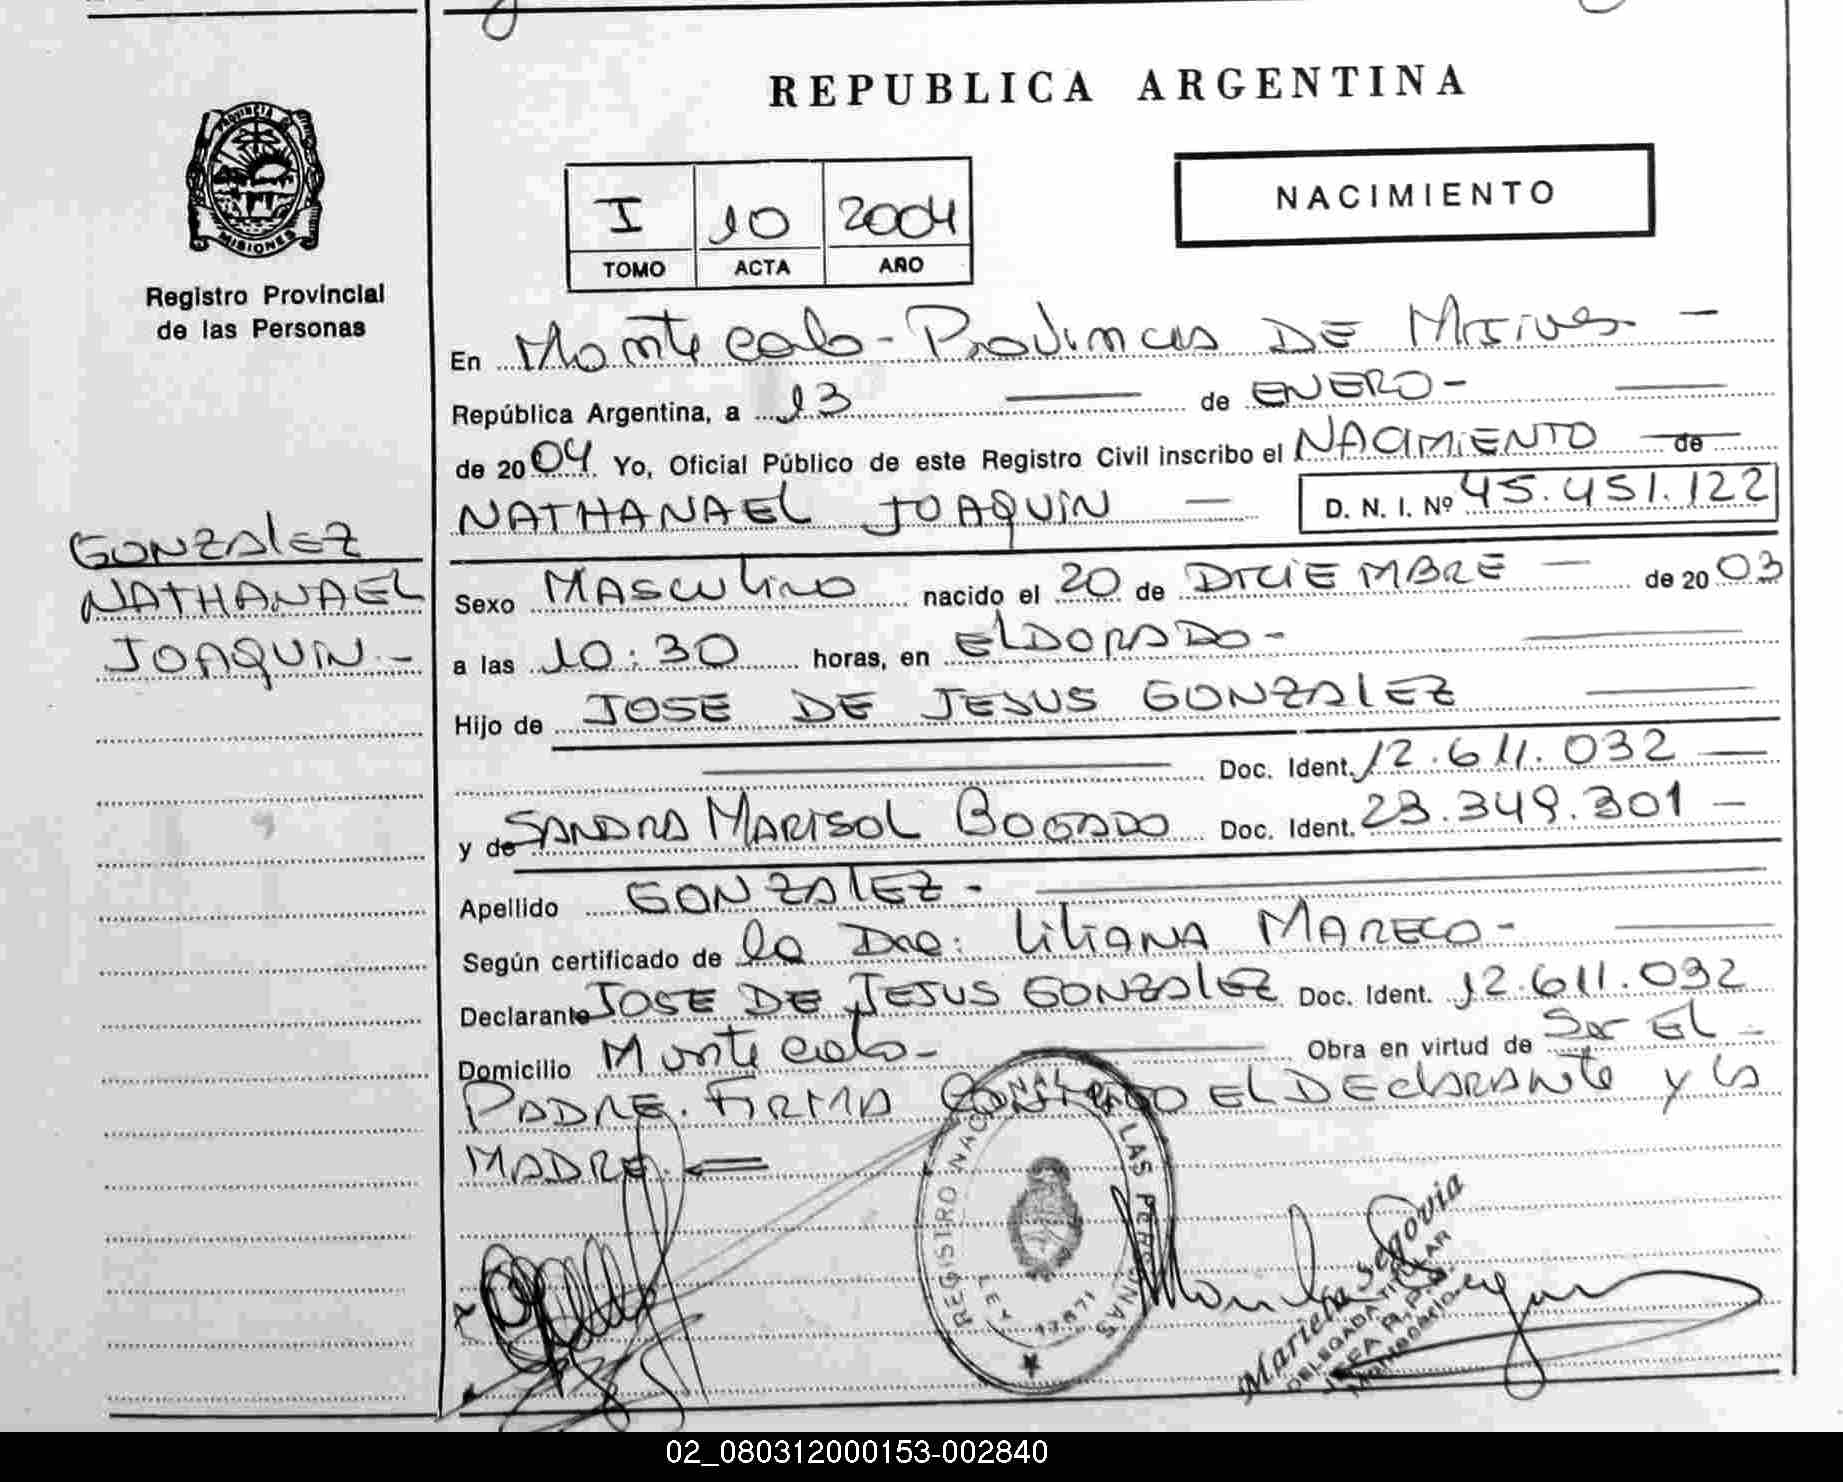 REPUBLICA ARGENTINA
PROVINCIA DE
MISIONES
Registro Provincial
de las Personas
I 10 2004
TOMO ACTA AÑO
NACIMIENTO
En Montecarlo - Provincia DE Misiones -
República Argentina, a 13 de ENERO -
de 2004 Yo, Oficial Público de este Registro Civil inscribo el NACIMIENTO de
NATHANAEL JOAQUIN — D. N. I. Nº 45.451.122
GONZALEZ
NATHANAEL
JOAQUIN -
Sexo MASCULINO nacido el 20 de DICIEMBRE — de 2003
a las 10:30 horas, en ELDORADO -
Hijo de JOSE DE JESUS GONZALEZ
Doc. Ident. 12.611.032 —
y de SANDRA MARISOL BOGADO Doc. Ident. 23.349.301 —
Apellido GONZALEZ -
Según certificado de la Dra: LILIANA MARECO -
Declarante JOSE DE JESUS GONZALEZ Doc. Ident. 12.611.032
Domicilio Montecarlo - Obra en virtud de Ser El -
PADRE. FIRMA CONMIGO EL DECLARANTE y la
MADRE.
REGISTRO NACIONAL DE LAS PERSONAS
LEY 13671
Mariena Segovia
DELEGADA TITULAR
02_080312000153-002840